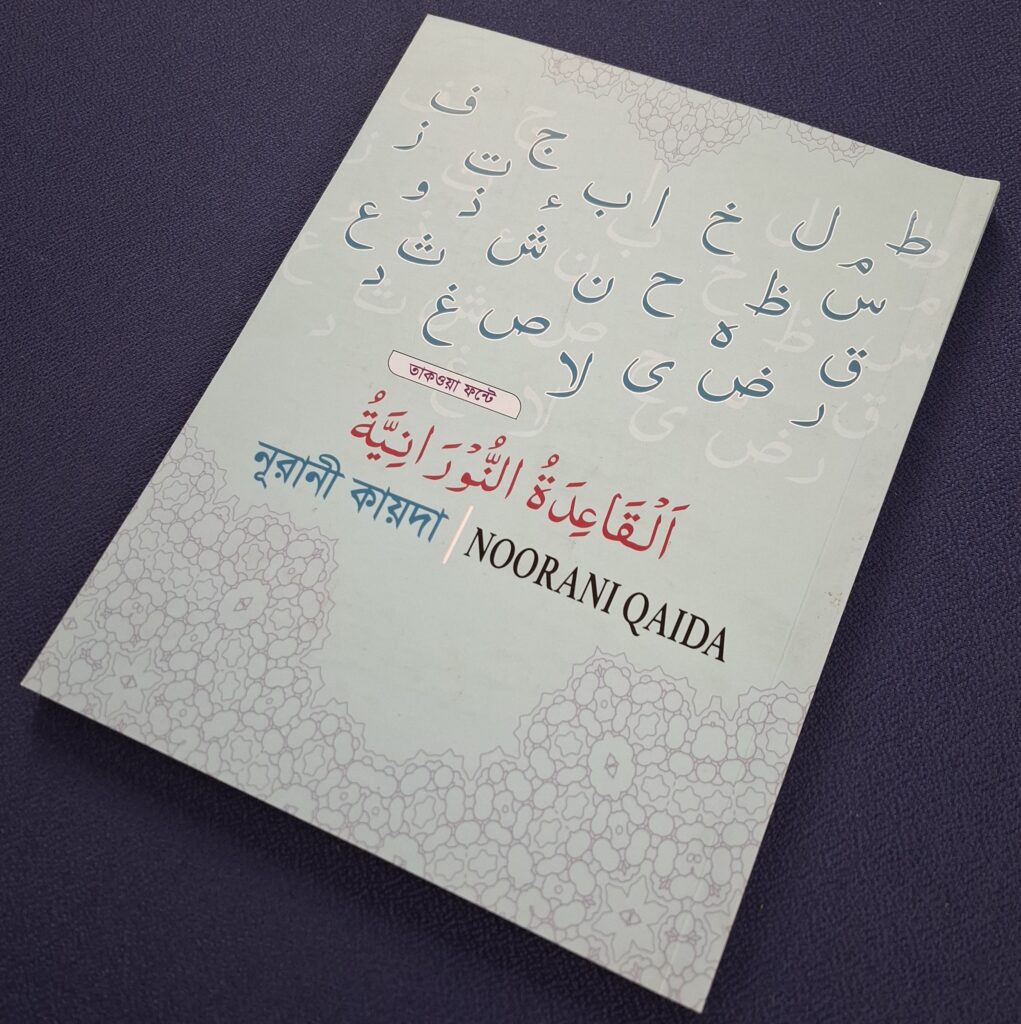 ف ج ا ل ط
ز ت ب خ م
و ذ ء ن ح ظ س
ع ث ش
د غ ص لا ى ه ض ر ق
তাকওয়া ফন্টে
اَلْقَاعِدَةُ النُّوْرَانِيَّةُ
নূরানী কায়দা | NOORANI QAIDA